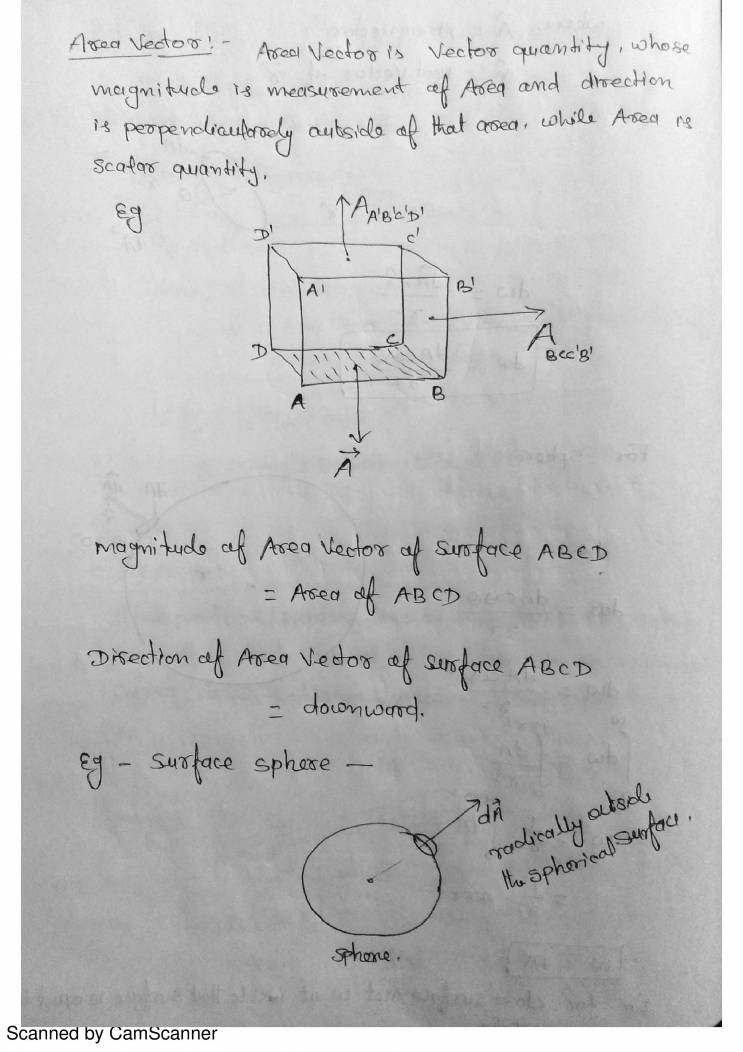 Area Vector :- Area Vector is Vector quantity, whose
magnitude is measurement of Area and direction
is perpendicularly outside of that area. while Area is
scalar quantity.
Eg
A A'B'C'D'
D'
C'
A'
B'
A BCC'B'
D
C
A
B
A⃗
Magnitude of Area Vector of surface ABCD
= Area of ABCD
Direction of Area Vector of surface ABCD
= downward.
Eg - Surface sphere —
dA⃗
radically outside
the spherical surface.
sphere.
Scanned by CamScanner